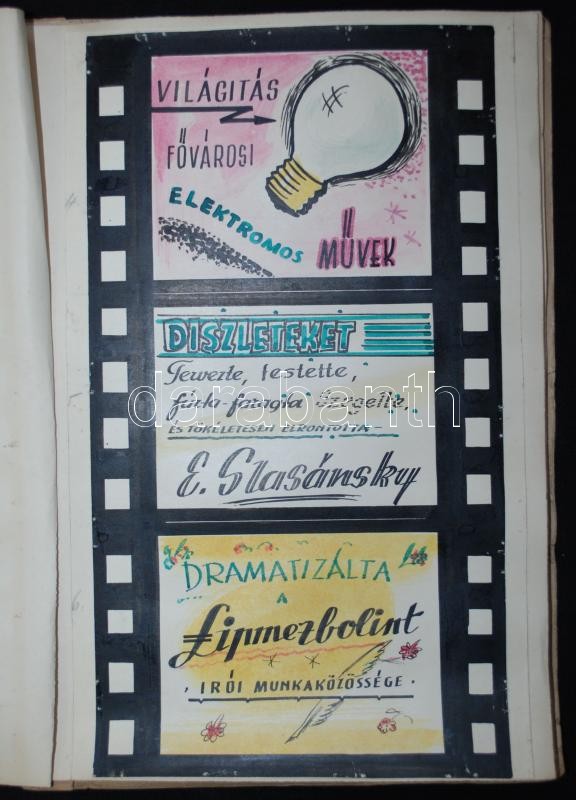 VILÁGITÁS
FŐVÁROSI
ELEKTROMOS
MŰVEK
DISZLETEKET
Tewezte, festette,
fúrta-faragta szegelte,
ÉS TÖKÉLETESEN ELRONTOTTA
E. Slasánsky
DRAMATIZÁLTA
A
Lipmezbolint
IRÓI MUNKAKÖZÖSSÉGE
darabanth